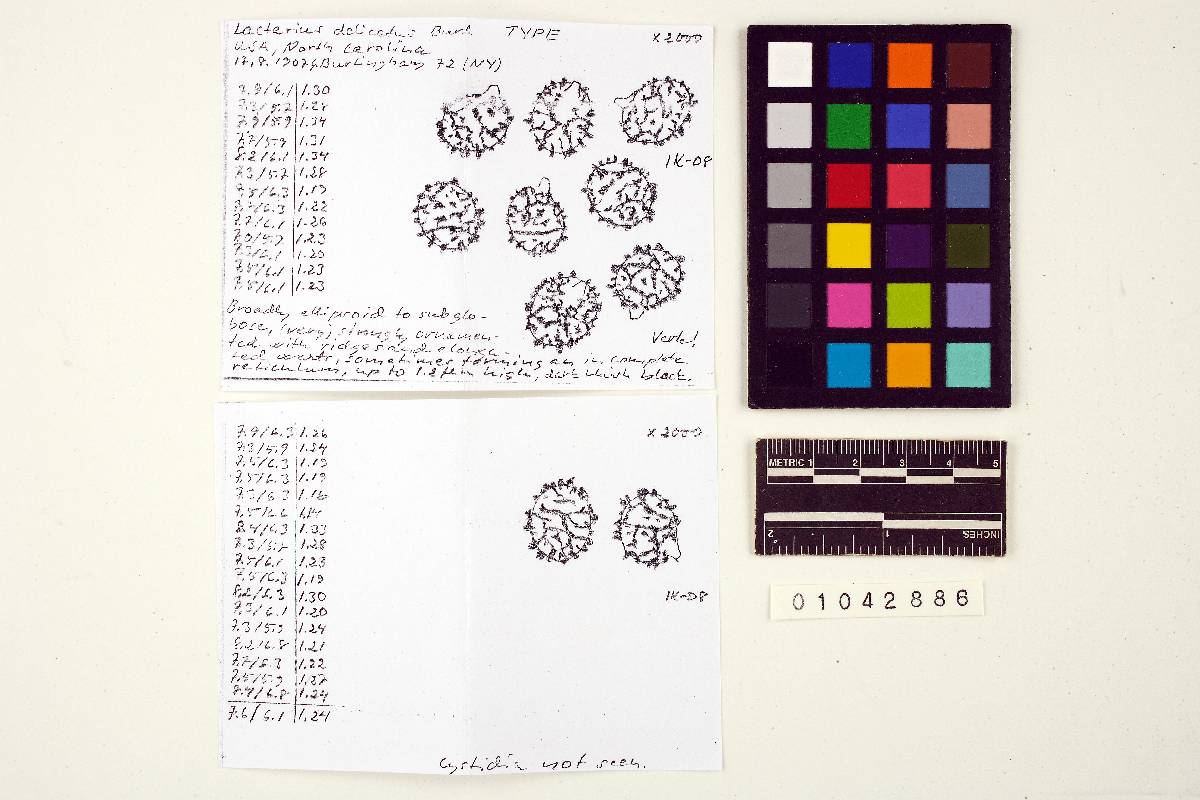 Lactarius delicatus Burl TYPE
x 2000
USA, North Carolina
17.8.1907, Burlingham 72 (NY)
7.9/6.1 1.30
7.3/5.7 1.28
7.9/5.9 1.34
7.7/5.9 1.31
8.2/6.1 1.34
7.3/5.7 1.28
7.5/6.3 1.19
7.7/6.3 1.22
7.7/6.1 1.26
7.0/5.7 1.23
7.3/6.1 1.20
7.5/6.1 1.23
7.5/6.1 1.23
IK-D8
Verk.!
Broadly ellipsoid to subglo-
bose, (very) strongly ornamen-
ted with ridges and elonga-
ted warts, sometimes forming an incomplete
reticulum, up to 1.8 µm high, dark bluish black.
7.9/6.3 1.26
7.3/5.9 1.24
7.5/6.3 1.19
7.5/6.3 1.19
7.3/6.3 1.16
7.5/6.6 1.14
8.4/6.3 1.33
7.3/5.7 1.28
7.5/6.1 1.23
7.5/6.3 1.19
8.2/6.3 1.30
7.3/6.1 1.20
7.3/5.9 1.24
8.2/6.8 1.21
7.7/6.3 1.22
7.5/5.9 1.27
8.4/6.8 1.24
7.6/6.1 1.24
x 2000
IK-D8
Cystidia not seen.
METRIC 1 2 3 4 5
2 1 INCHES
01042886